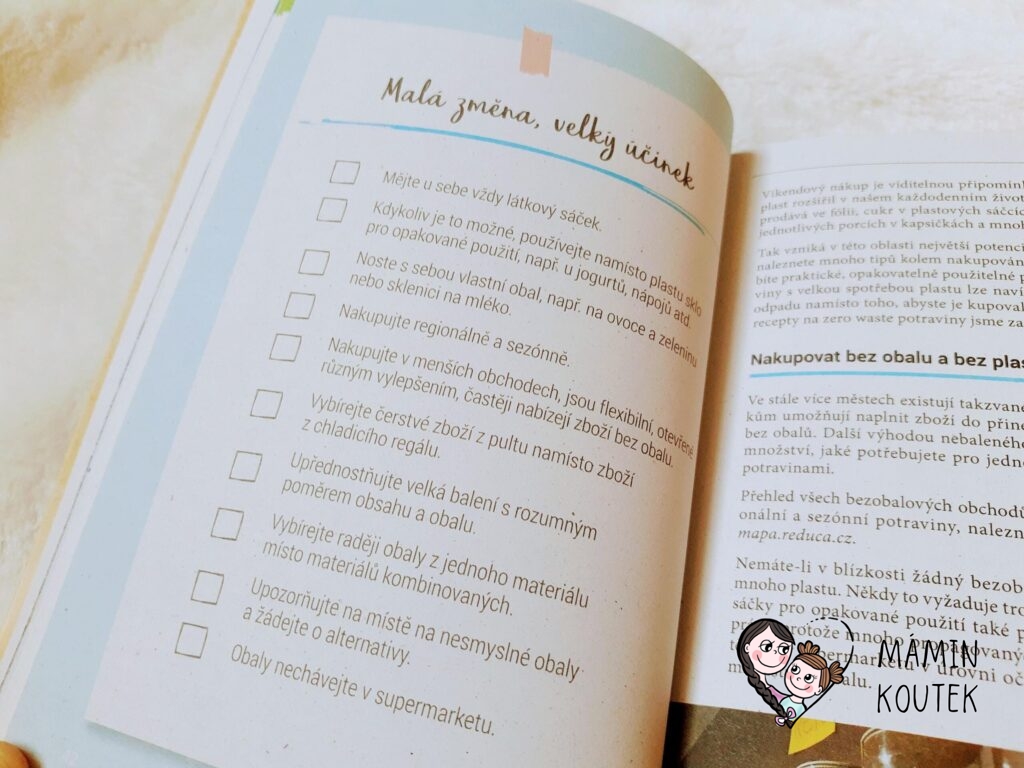 Malá změna, velký účinek
Mějte u sebe vždy látkový sáček.
Kdykoliv je to možné, používejte namísto plastu sklo
pro opakované použití, např. u jogurtů, nápojů atd.
Noste s sebou vlastní obal, např. na ovoce a zeleninu
nebo sklenici na mléko.
Nakupujte regionálně a sezónně.
Nakupujte v menších obchodech, jsou flexibilní, otevřené
různým vylepšením, častěji nabízejí zboží bez obalu.
Vybírejte čerstvé zboží z pultu namísto zboží
z chladicího regálu.
Upřednostňujte velká balení s rozumným
poměrem obsahu a obalu.
Vybírejte raději obaly z jednoho materiálu
místo materiálů kombinovaných.
Upozorňujte na místě na nesmyslné obaly
a žádejte o alternativy.
Obaly nechávejte v supermarketu.
Víkendový nákup je viditelnou
plast rozšířil v našem každodenním
prodává ve fólii, cukr v plastových
jednotlivých porcích v kapsičkách a
Tak vzniká v této oblasti největší
naleznete mnoho tipů kolem
bíte praktické, opakovatelně použitelné
viny s velkou spotřebou plastu lze
odpadu namísto toho, abyste je
recepty na zero waste potraviny jsme
Nakupovat bez obalu a bez
Ve stále více městech existují takzvané
kům umožňují naplnit zboží do
bez obalů. Další výhodou nebaleného
množství, jaké potřebujete pro
potravinami.
Přehled všech bezobalových obchodů
onální a sezónní potraviny,
mapa.reduca.cz.
Nemáte-li v blízkosti žádný
mnoho plastu. Někdy to vyžaduje
sáčky pro opakované použití také
protože mnoho
úrovni
MÁMIN
KOUTEK